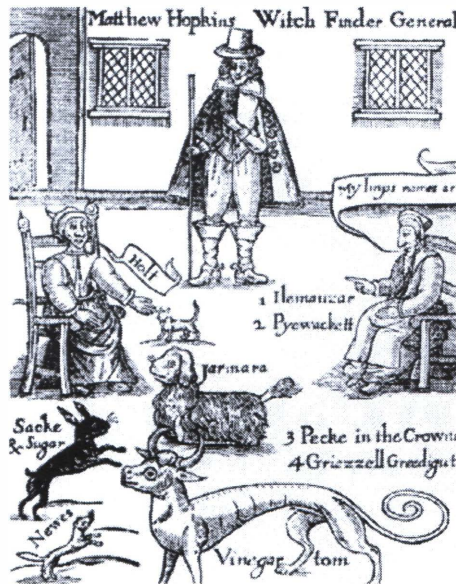 Matthew Hopkins Witch Finder General
My Imps names are
Holt
1 Ilemauzar
2 Pyewackett
Jarmara
Sacke
& Sugar
3 Pecke in the Crowne
4 Griezzell Greedigut
Newes
Vinegar tom